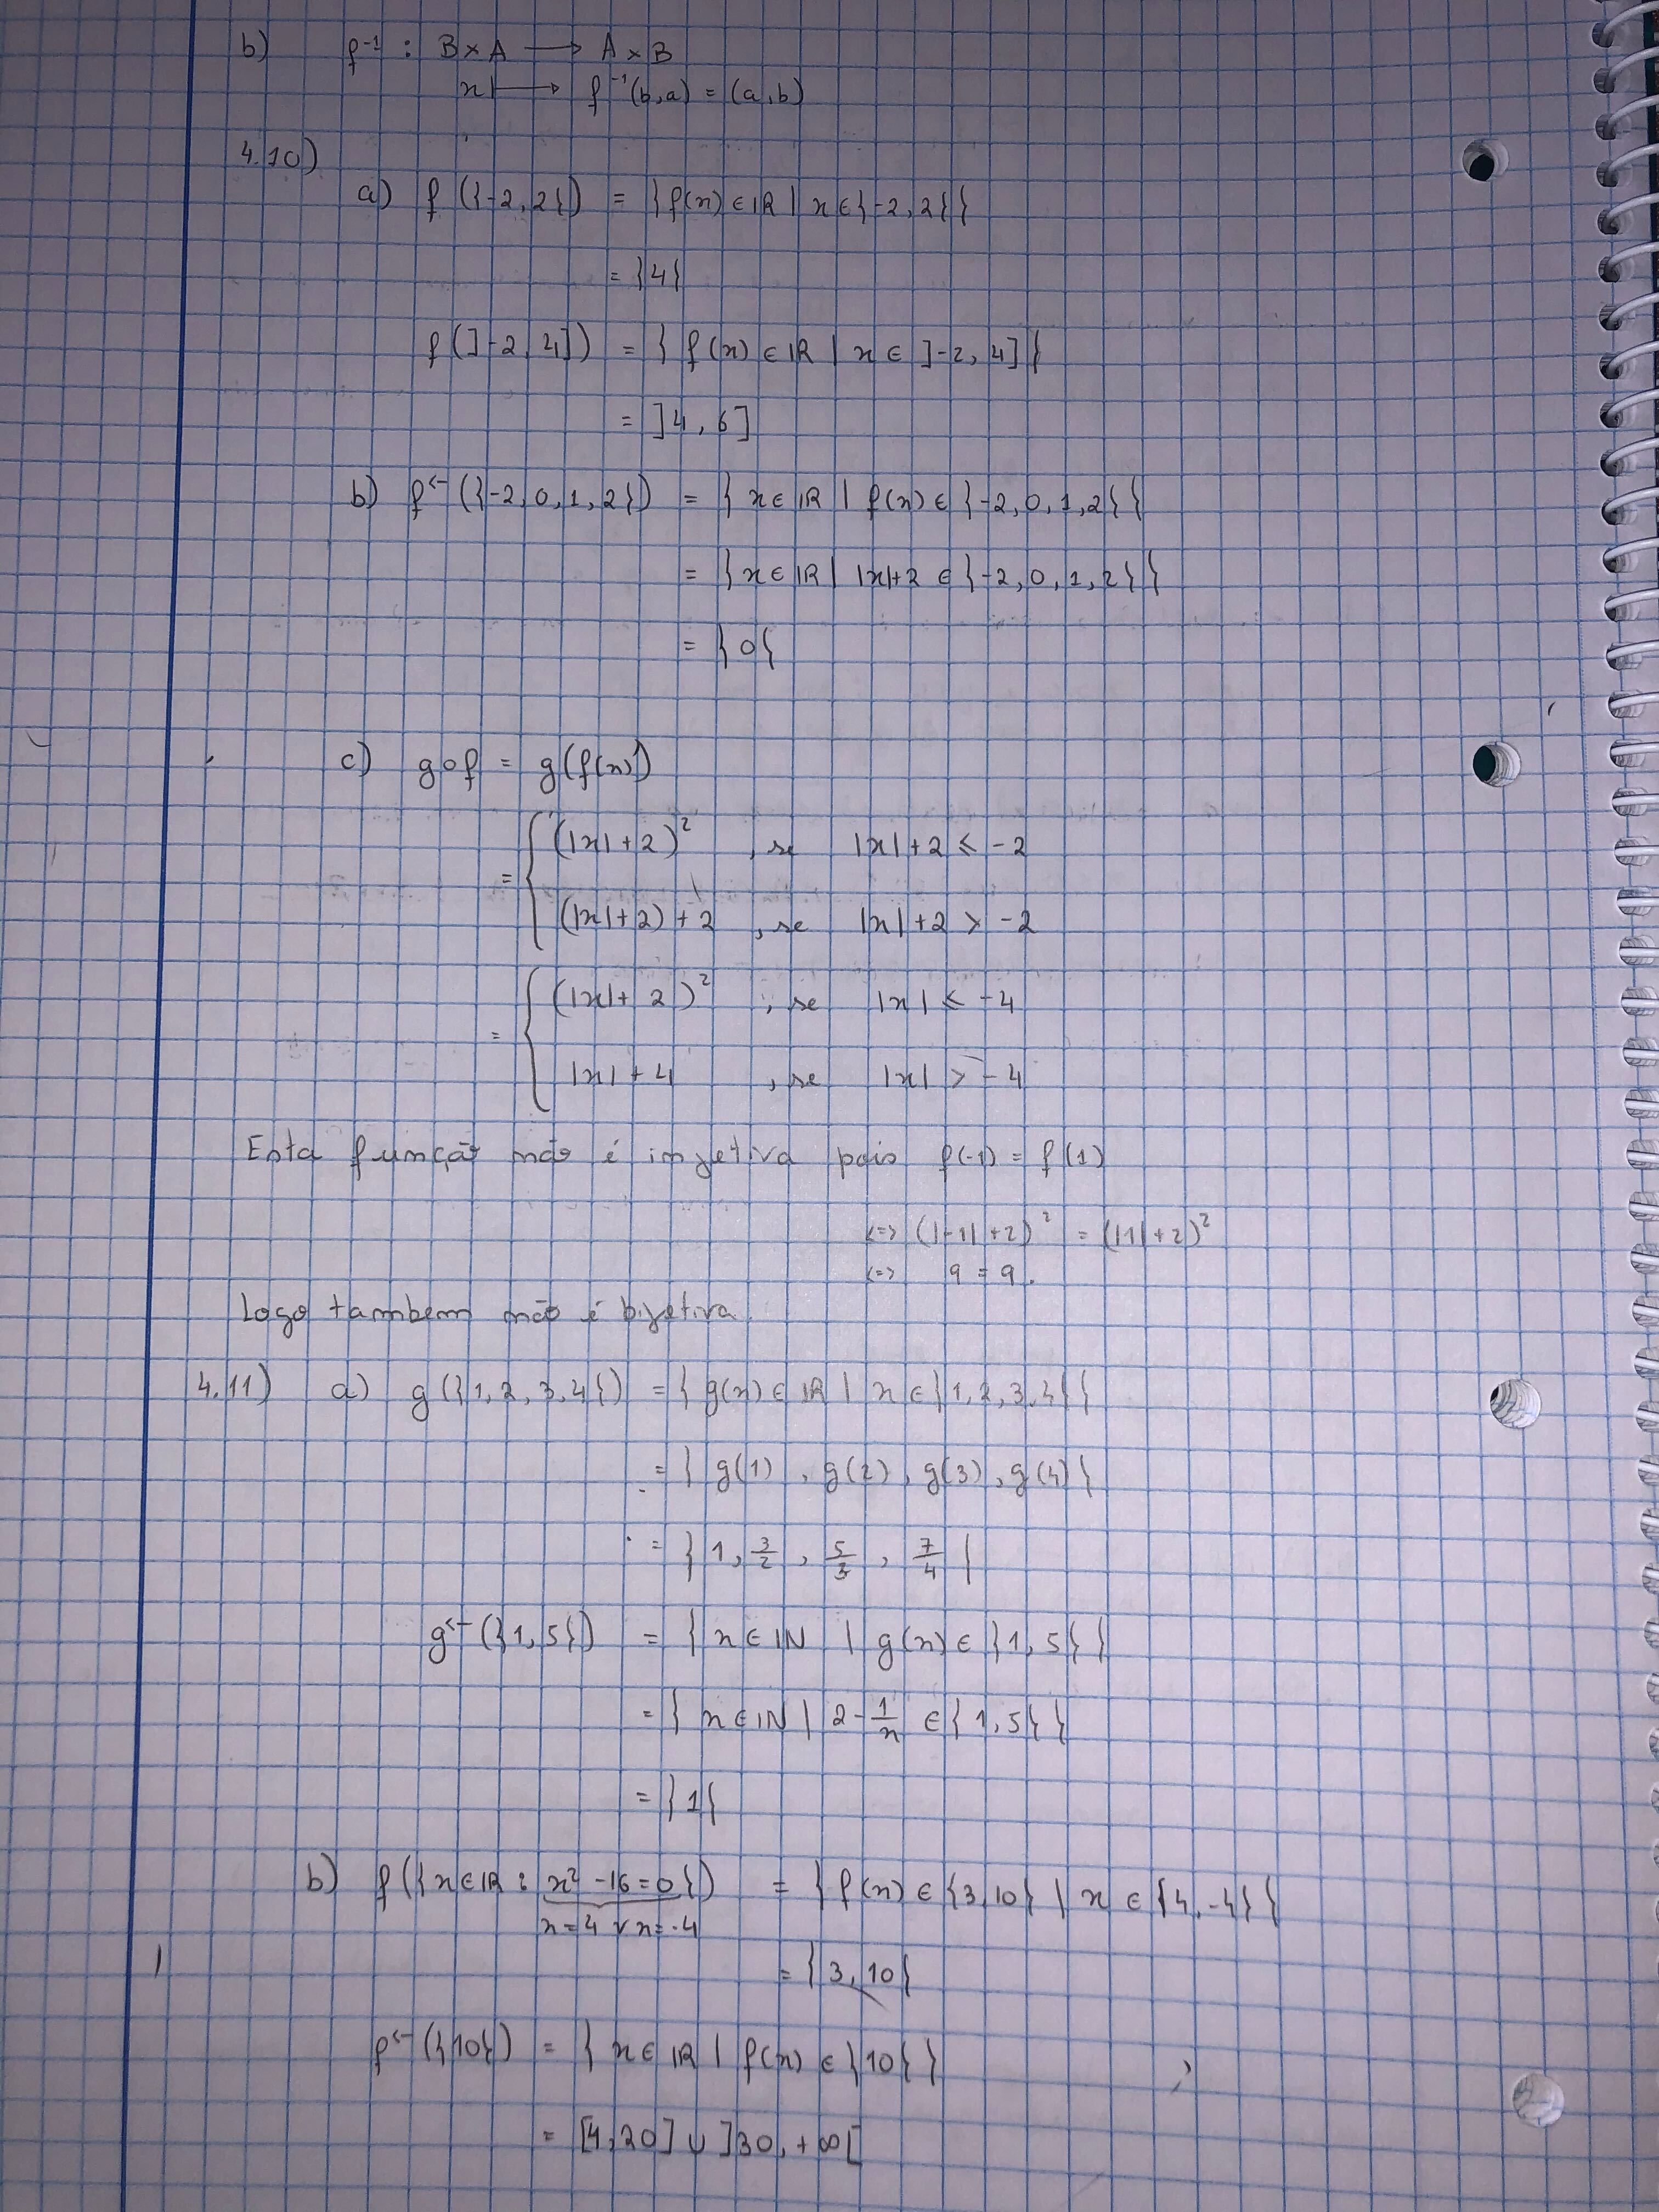 b) f⁻¹ : B×A → A×B
x ↦ f⁻¹(b,a) = (a,b)
4.10)
a) f({-2,2}) = {f(x) ∈ IR | x ∈ {-2,2}}
= {4}
f(]-2,4]) = {f(x) ∈ IR | x ∈ ]-2,4]}
= ]4,6]
b) f^←({-2,0,1,2}) = {x ∈ IR | f(x) ∈ {-2,0,1,2}}
= {x ∈ IR | |x|+2 ∈ {-2,0,1,2}}
= {0}
c) g∘f = g(f(x))
= { (|x|+2)² , se |x|+2 ≤ -2
(|x|+2)+2 , se |x|+2 > -2
= { (|x|+2)² , se |x| ≤ -4
|x|+4 , se |x| > -4
Esta função não é injetiva pois f(-1) = f(1)
<=> (|-1|+2)² = (|1|+2)²
<=> 9 = 9.
Logo tambem não é bijetiva.
4.11) a) g({1,2,3,4}) = {g(x) ∈ IR | x ∈ {1,2,3,4}}
= {g(1), g(2), g(3), g(4)}
= {1, 3/2, 5/3, 7/4}
g^←({1,5}) = {x ∈ IN | g(x) ∈ {1,5}}
= {x ∈ IN | 2-1/x ∈ {1,5}}
= {1}
b) f({x ∈ IR : x² -16=0}) = {f(x) ∈ {3,10} | x ∈ {4,-4}}
x=4 ∨ x=-4
= {3,10}
f^←({10}) = {x ∈ IR | f(x) ∈ {10}}
= [4,20] ∪ ]30,+∞[